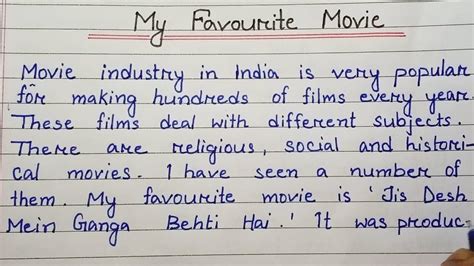 My Favourite Movie
Movie industry in India is very popular
for making hundreds of films every year.
These films deal with different subjects.
There are religious, social and histori-
cal movies. I have seen a number of
them. My favourite movie is 'Jis Desh
Mein Ganga Behti Hai.' It was produc-